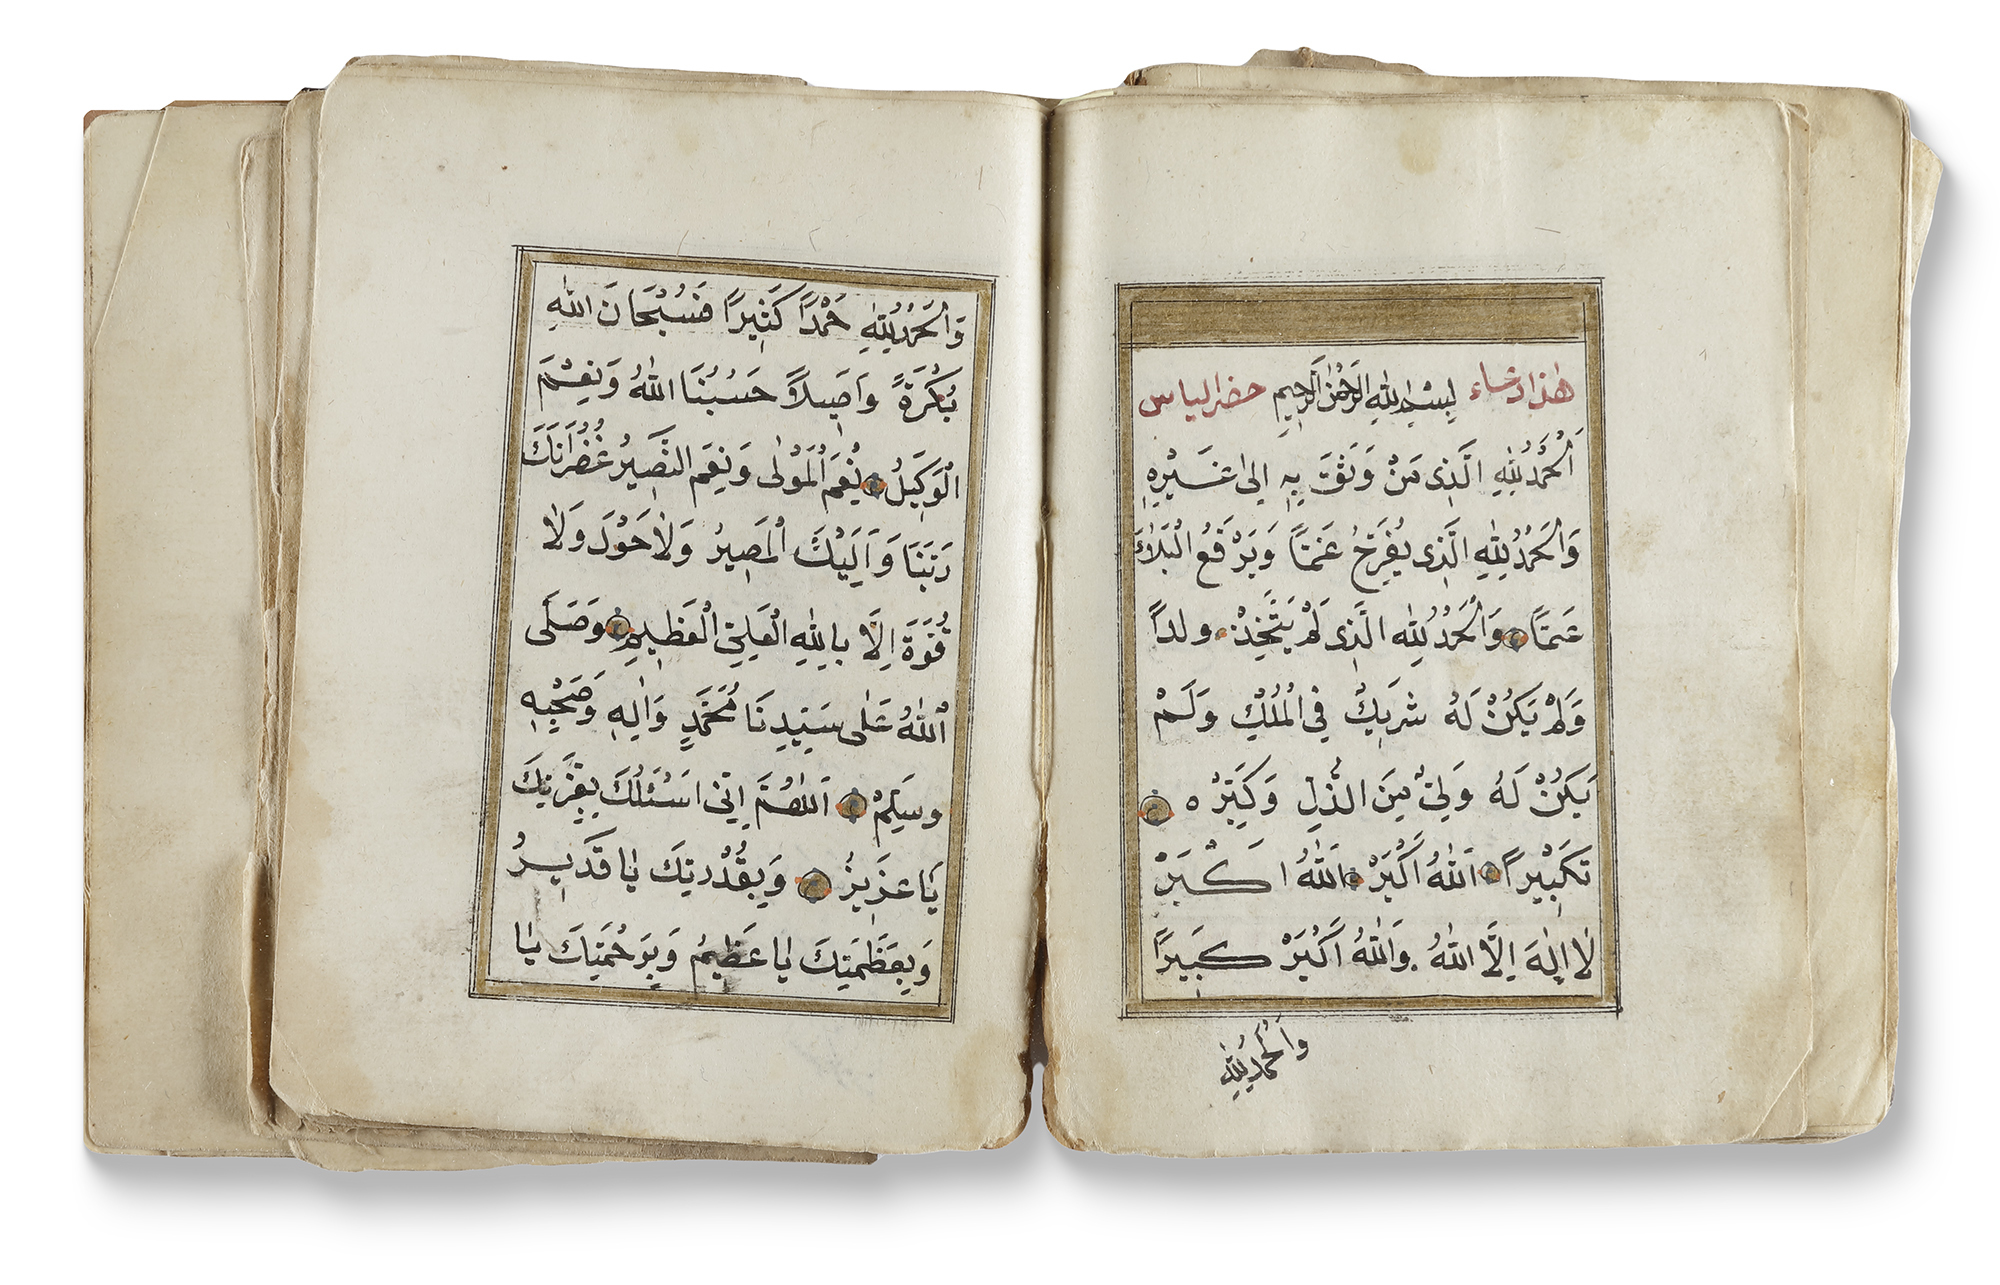 هٰذا دعاء بسم الله الرحمٰن الرحيم خضر الياس
اَلْحَمْدُ لِلّٰهِ الَّذِى مَنْ وَثَقَ بِهِ اِلىٰ غَيْرِهِ
وَالْحَمْدُ لِلّٰهِ الَّذِى يُفَرِّحُ غَمَّنَا وَيَرْفَعُ الْبَلَاءَ
عَنَّا وَالْحَمْدُ لِلّٰهِ الَّذِى لَمْ يَتَّخِذْ ولداً
وَلَمْ يَكُنْ لَهُ شَرِيكٌ فِى الْمُلْكِ وَلَمْ
يَكُنْ لَهُ وَلِىٌّ مِنَ الذُّلِّ وَكَبِّرْهُ
تَكْبِيْراً اَللّٰهُ اَكْبَرْ اَللّٰهُ اَكْبَرْ
لَا اِلٰهَ اِلَّا اللّٰهُ وَاللّٰهُ اَكْبَرْ كَبِيراً
وَالْحَمْدُ لِلّٰهِ
وَالْحَمْدُ لِلّٰهِ حَمْدًا كَثِيرًا فَسُبْحَانَ اللّٰهِ
بُكْرَةً وَاَصِيلاً حَسْبُنَا اللّٰهُ وَنِعْمَ
الْوَكِيلُ نِعْمَ الْمَوْلٰى وَنِعْمَ النَّصِيرُ غُفْرَانَكَ
رَبَّنَا وَاِلَيْكَ الْمَصِيرُ وَلَا حَوْلَ وَلَا
قُوَّةَ اِلَّا بِاللّٰهِ الْعَلِىِّ الْعَظِيمِ وَصَلَّى
اللّٰهُ عَلٰى سَيِّدِنَا مُحَمَّدٍ وَاٰلِهِ وَصَحْبِهِ
وسَلِّمْ اَللّٰهُمَّ اِنِّى اَسْئَلُكَ بِعِزَّتِكَ
يَا عَزِيزُ وَبِقُدْرَتِكَ يَا قَدِيرُ
وَبِعَظَمَتِكَ يَا عَظِيمُ وَبِرَحْمَتِكَ يَا